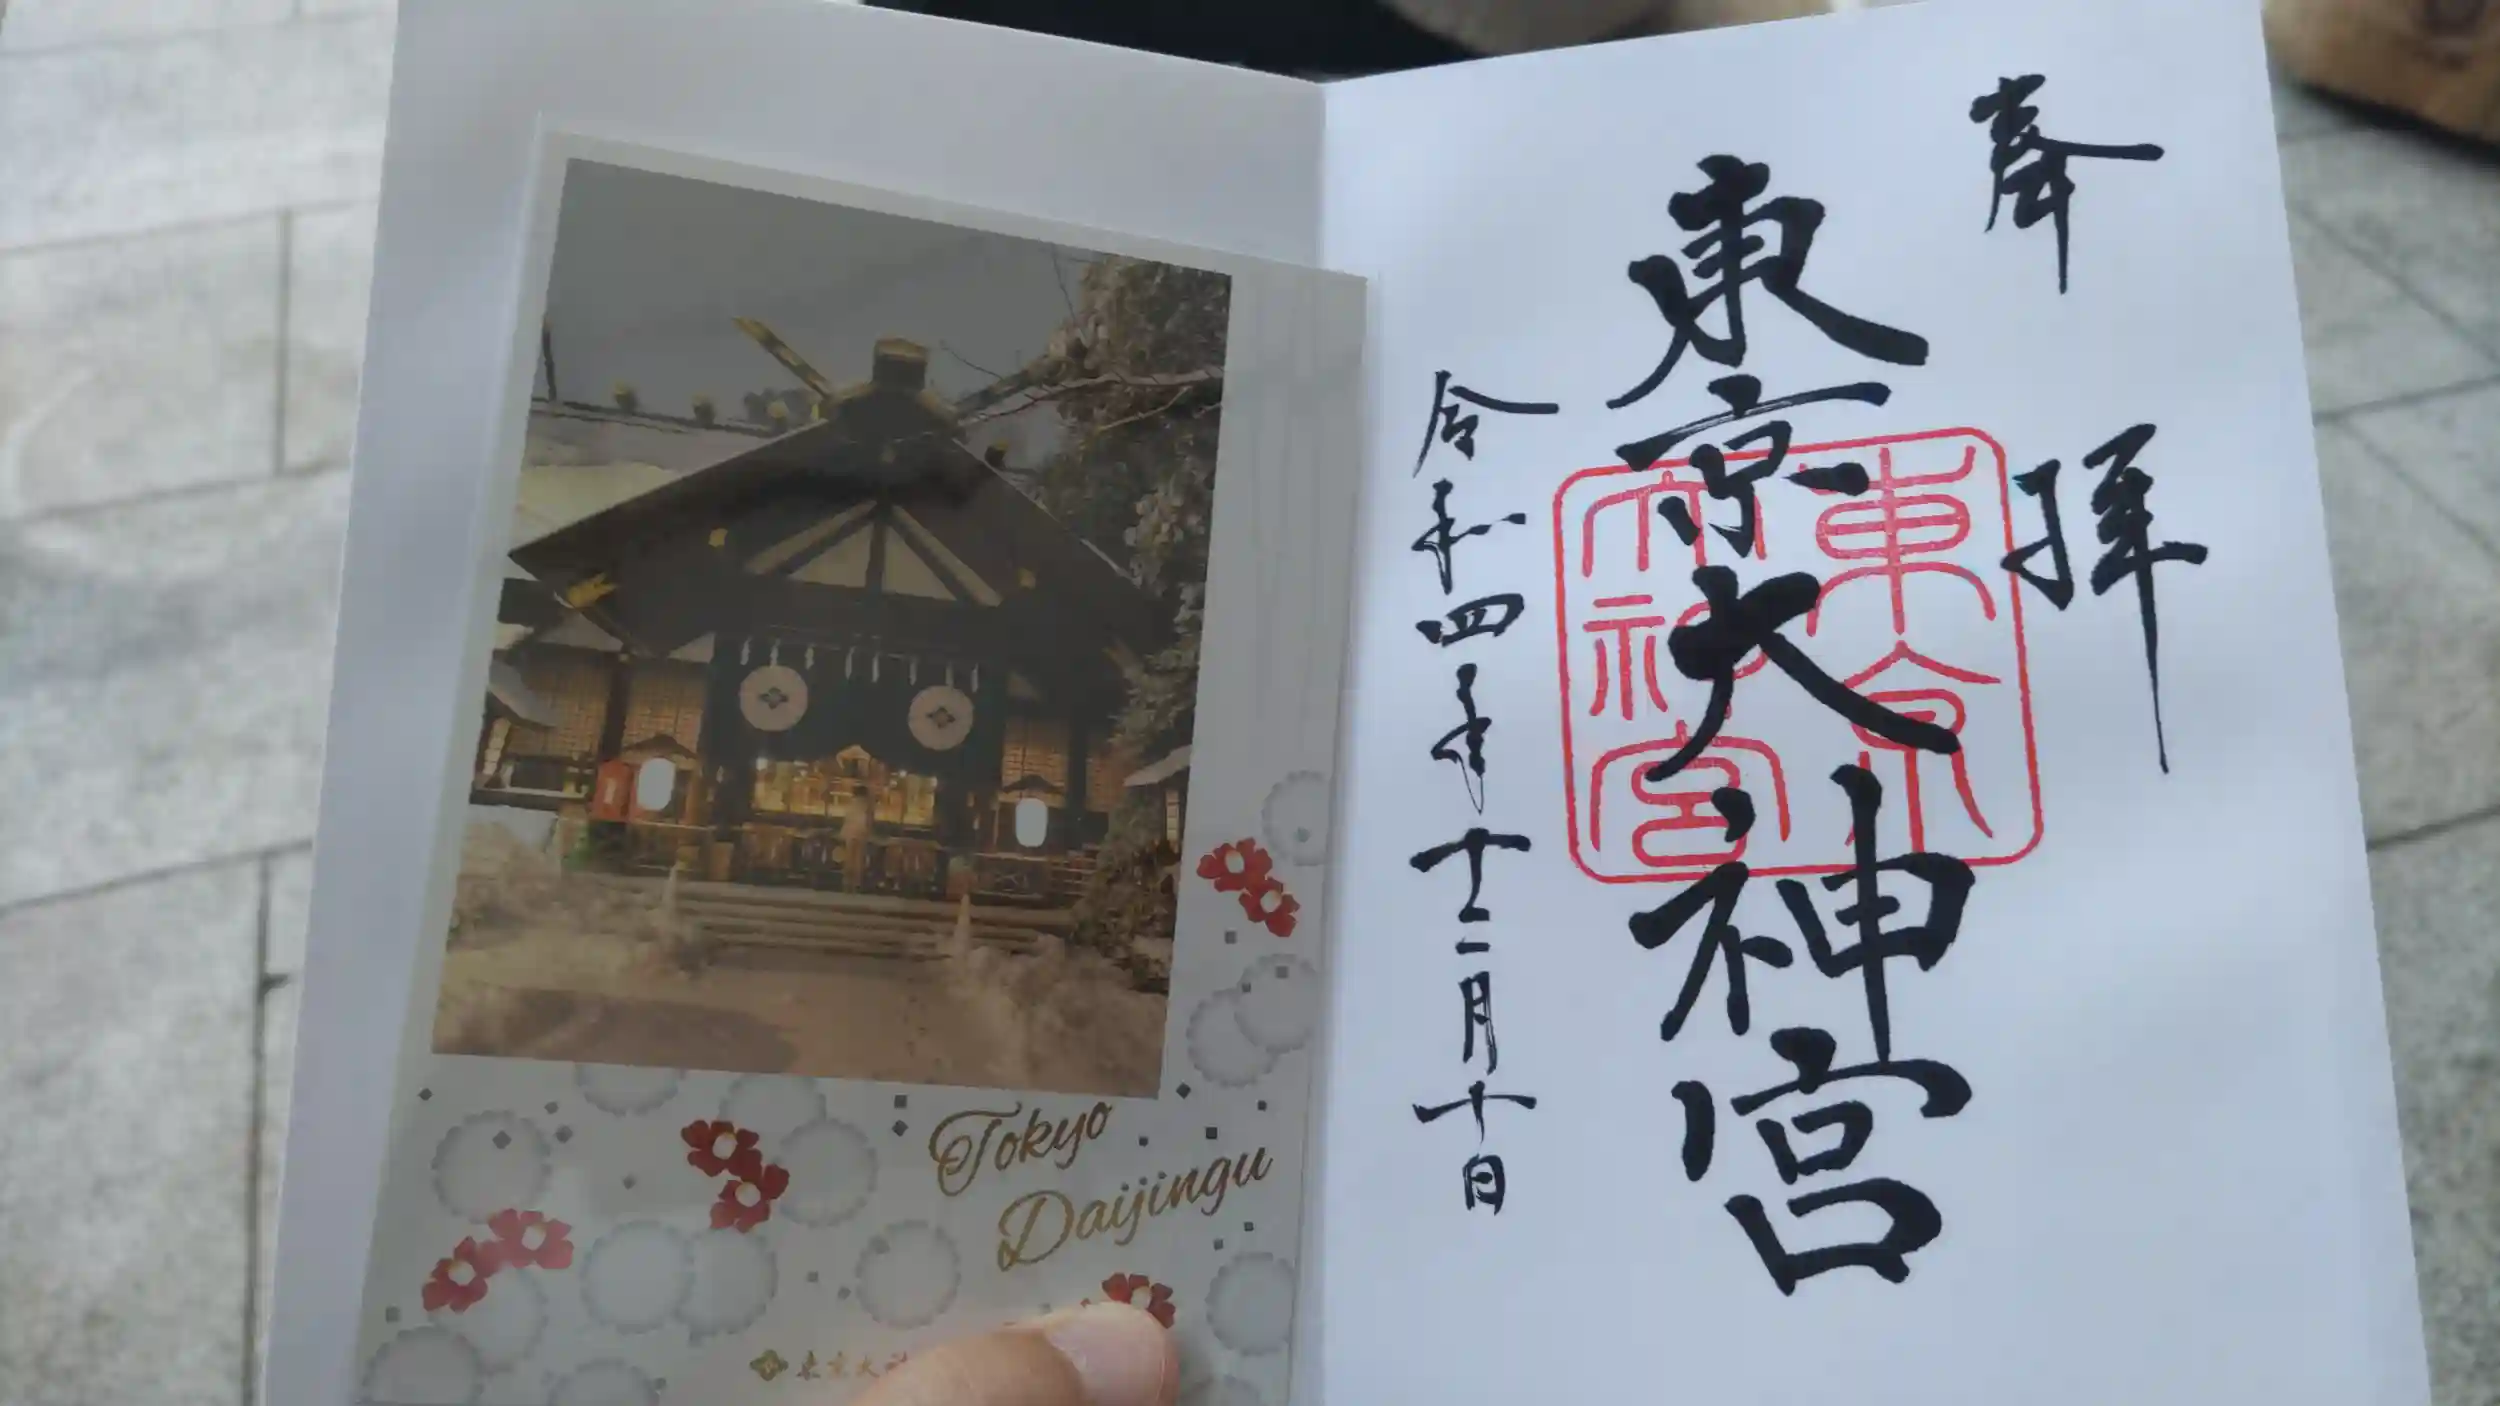 奉拝
東京大神宮
東京
大神宮
令和四年十二月十日
Tokyo
Daijingu
東京大神